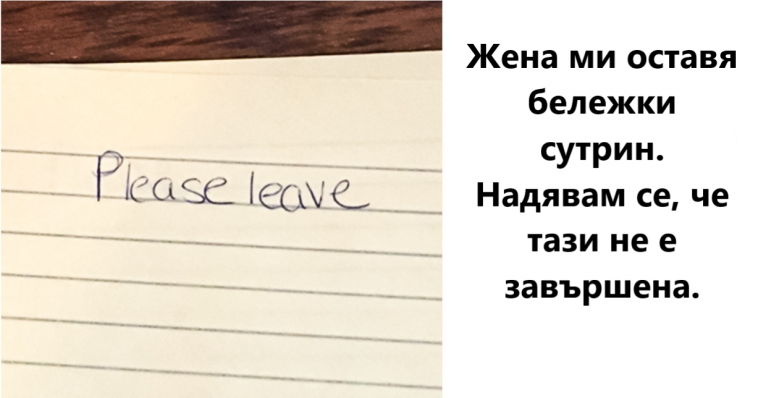 Please leave
Жена ми оставя
бележки
сутрин.
Надявам се, че
тази не е
завършена.